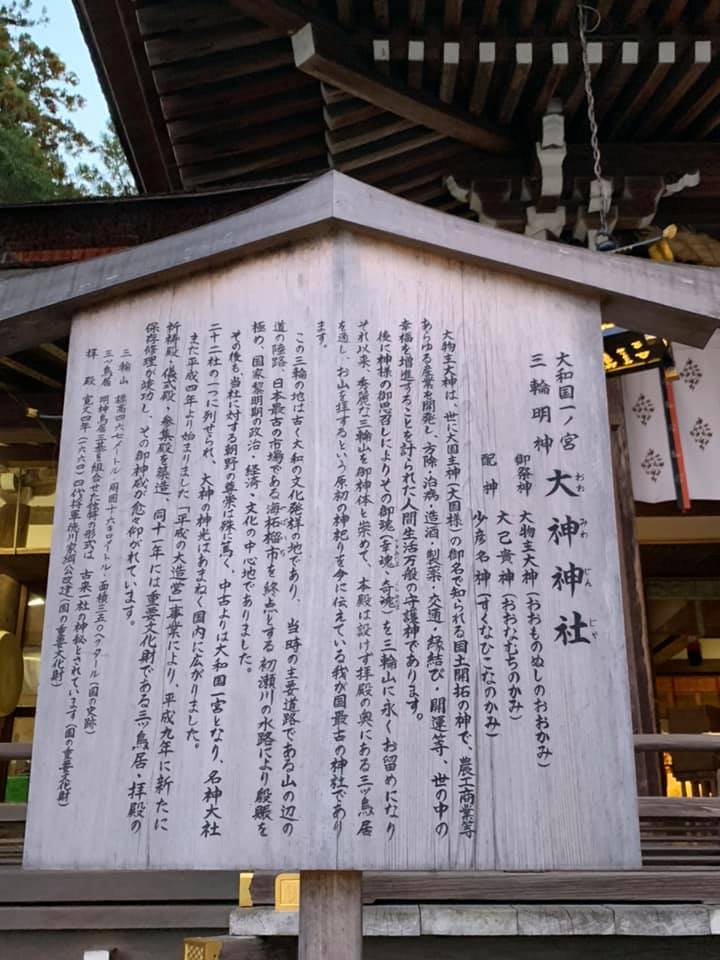 大和国一ノ宮
三輪明神
大神神社
おお みわ じん じゃ
御祭神 大物主大神(おおものぬしのおおかみ)
大己貴神(おおなむちのかみ)
配神 少彦名神(すくなひこなのかみ)
大物主大神は、世に大国主神(大国様)の御名で知られる国土開拓の神で、農工商業等
あらゆる産業を開発し、方除・治病・造酒・製薬・交通・縁結び・開運等、世の中の
幸福を増進することを計られた人間生活万般の守護神であります。
後に神様の御思召しによりその御魂(幸魂・奇魂)を三輪山に永くお留めになり
それ以来、秀麗な三輪山を御神体と崇めて、本殿は設けず拝殿の奥にある三ツ鳥居
を通し、お山を拝するという原初の神祀りを今に伝えている我が国最古の神社であり
ます。
この三輪の地は古く大和の文化発祥の地であり、当時の主要道路である山の辺の
道の陸路、日本最古の市場である海柘榴市を終点とする初瀬川の水路により殷賑を
極め、国家黎明期の政治・経済・文化の中心地でありました。
その後も、当社に対する朝野の尊崇は殊に篤く、中古よりは大和国一宮となり、名神大社
二十二社の一つに列せられ、大神の神光はあまねく国内に広がりました。
また平成四年より始まりました「平成の大造営」事業により、平成九年に新たに
祈祷殿・儀式殿・参集殿を築造、同十一年には重要文化財である三ツ鳥居・拝殿の
保存修理が竣功し、その御神威が愈々仰がれています。
三輪山 標高四六七メートル・周囲十六キロメートル・面積三五〇ヘクタール(国の史跡)
三ツ鳥居 明神鳥居三基を組合せた独特の形式は、古来一社の神秘とされています(国の重要文化財)
拝殿 寛文四年(一六六〇)四代将軍徳川家綱公改建(国の重要文化財)